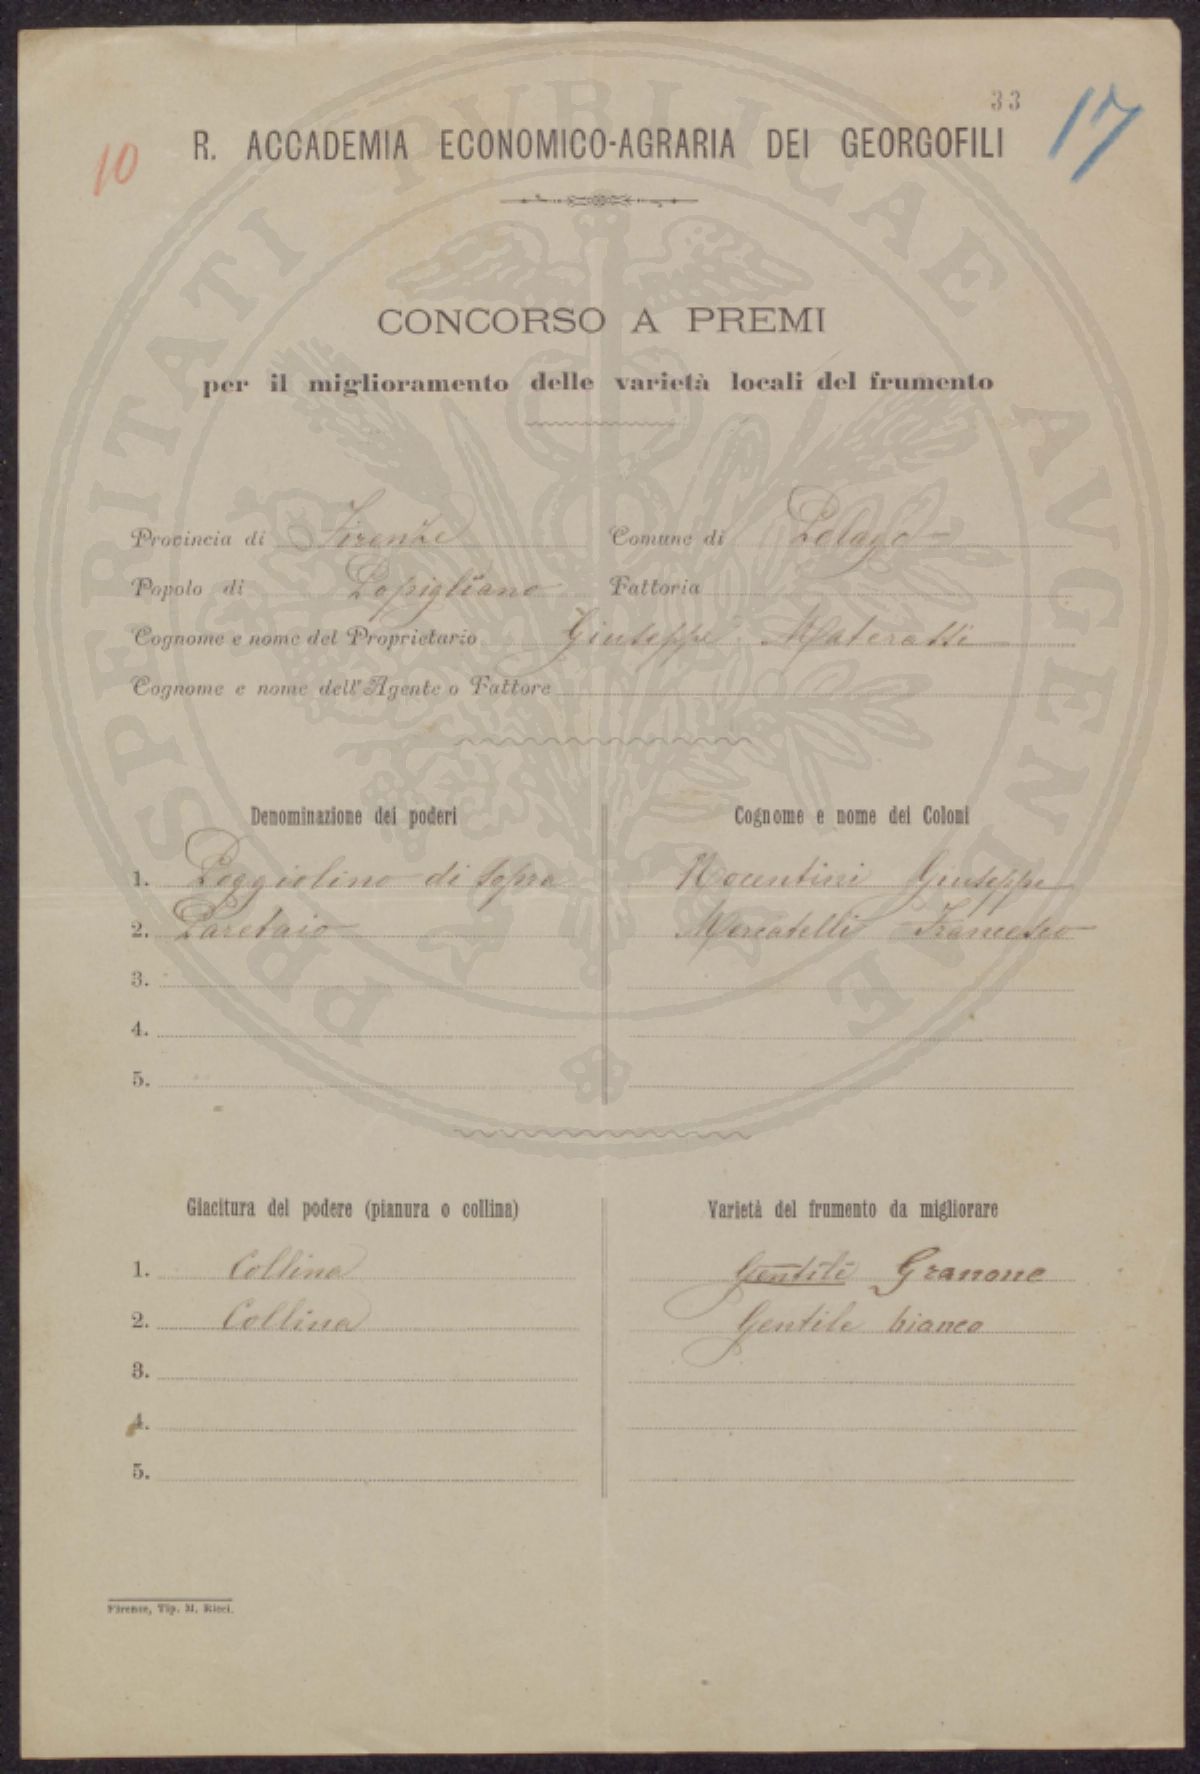 33
17
10
R. ACCADEMIA ECONOMICO-AGRARIA DEI GEORGOFILI
CONCORSO A PREMI
per il miglioramento delle varietà locali del frumento
Provincia di Firenze Comune di Pelago
Popolo di Popigliano Fattoria
Cognome e nome del Proprietario Giuseppe Materassi
Cognome e nome dell'Agente o Fattore
Denominazione dei poderi Cognome e nome dei Coloni
1. Poggiolino di Sopra Nocentini Giuseppe
2. Paretaio Mercatelli Francesco
3.
4.
5.
Giacitura del podere (pianura o collina) Varietà del frumento da migliorare
1. Collina Gentile Granone
2. Collina Gentile bianco
3.
4.
5.
Firenze, Tip. M. Ricci.
PROSPERITATI PVBLICAE AVGENDAE